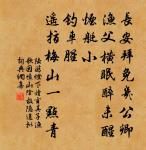 長安拜免幾公卿
漁父橫眠醉未醒
煙艇小
釣車腥
遙指梅山一點青
陸游燈下讀玄真子漁
歌因懷山陰故隱追擬
詞典網集